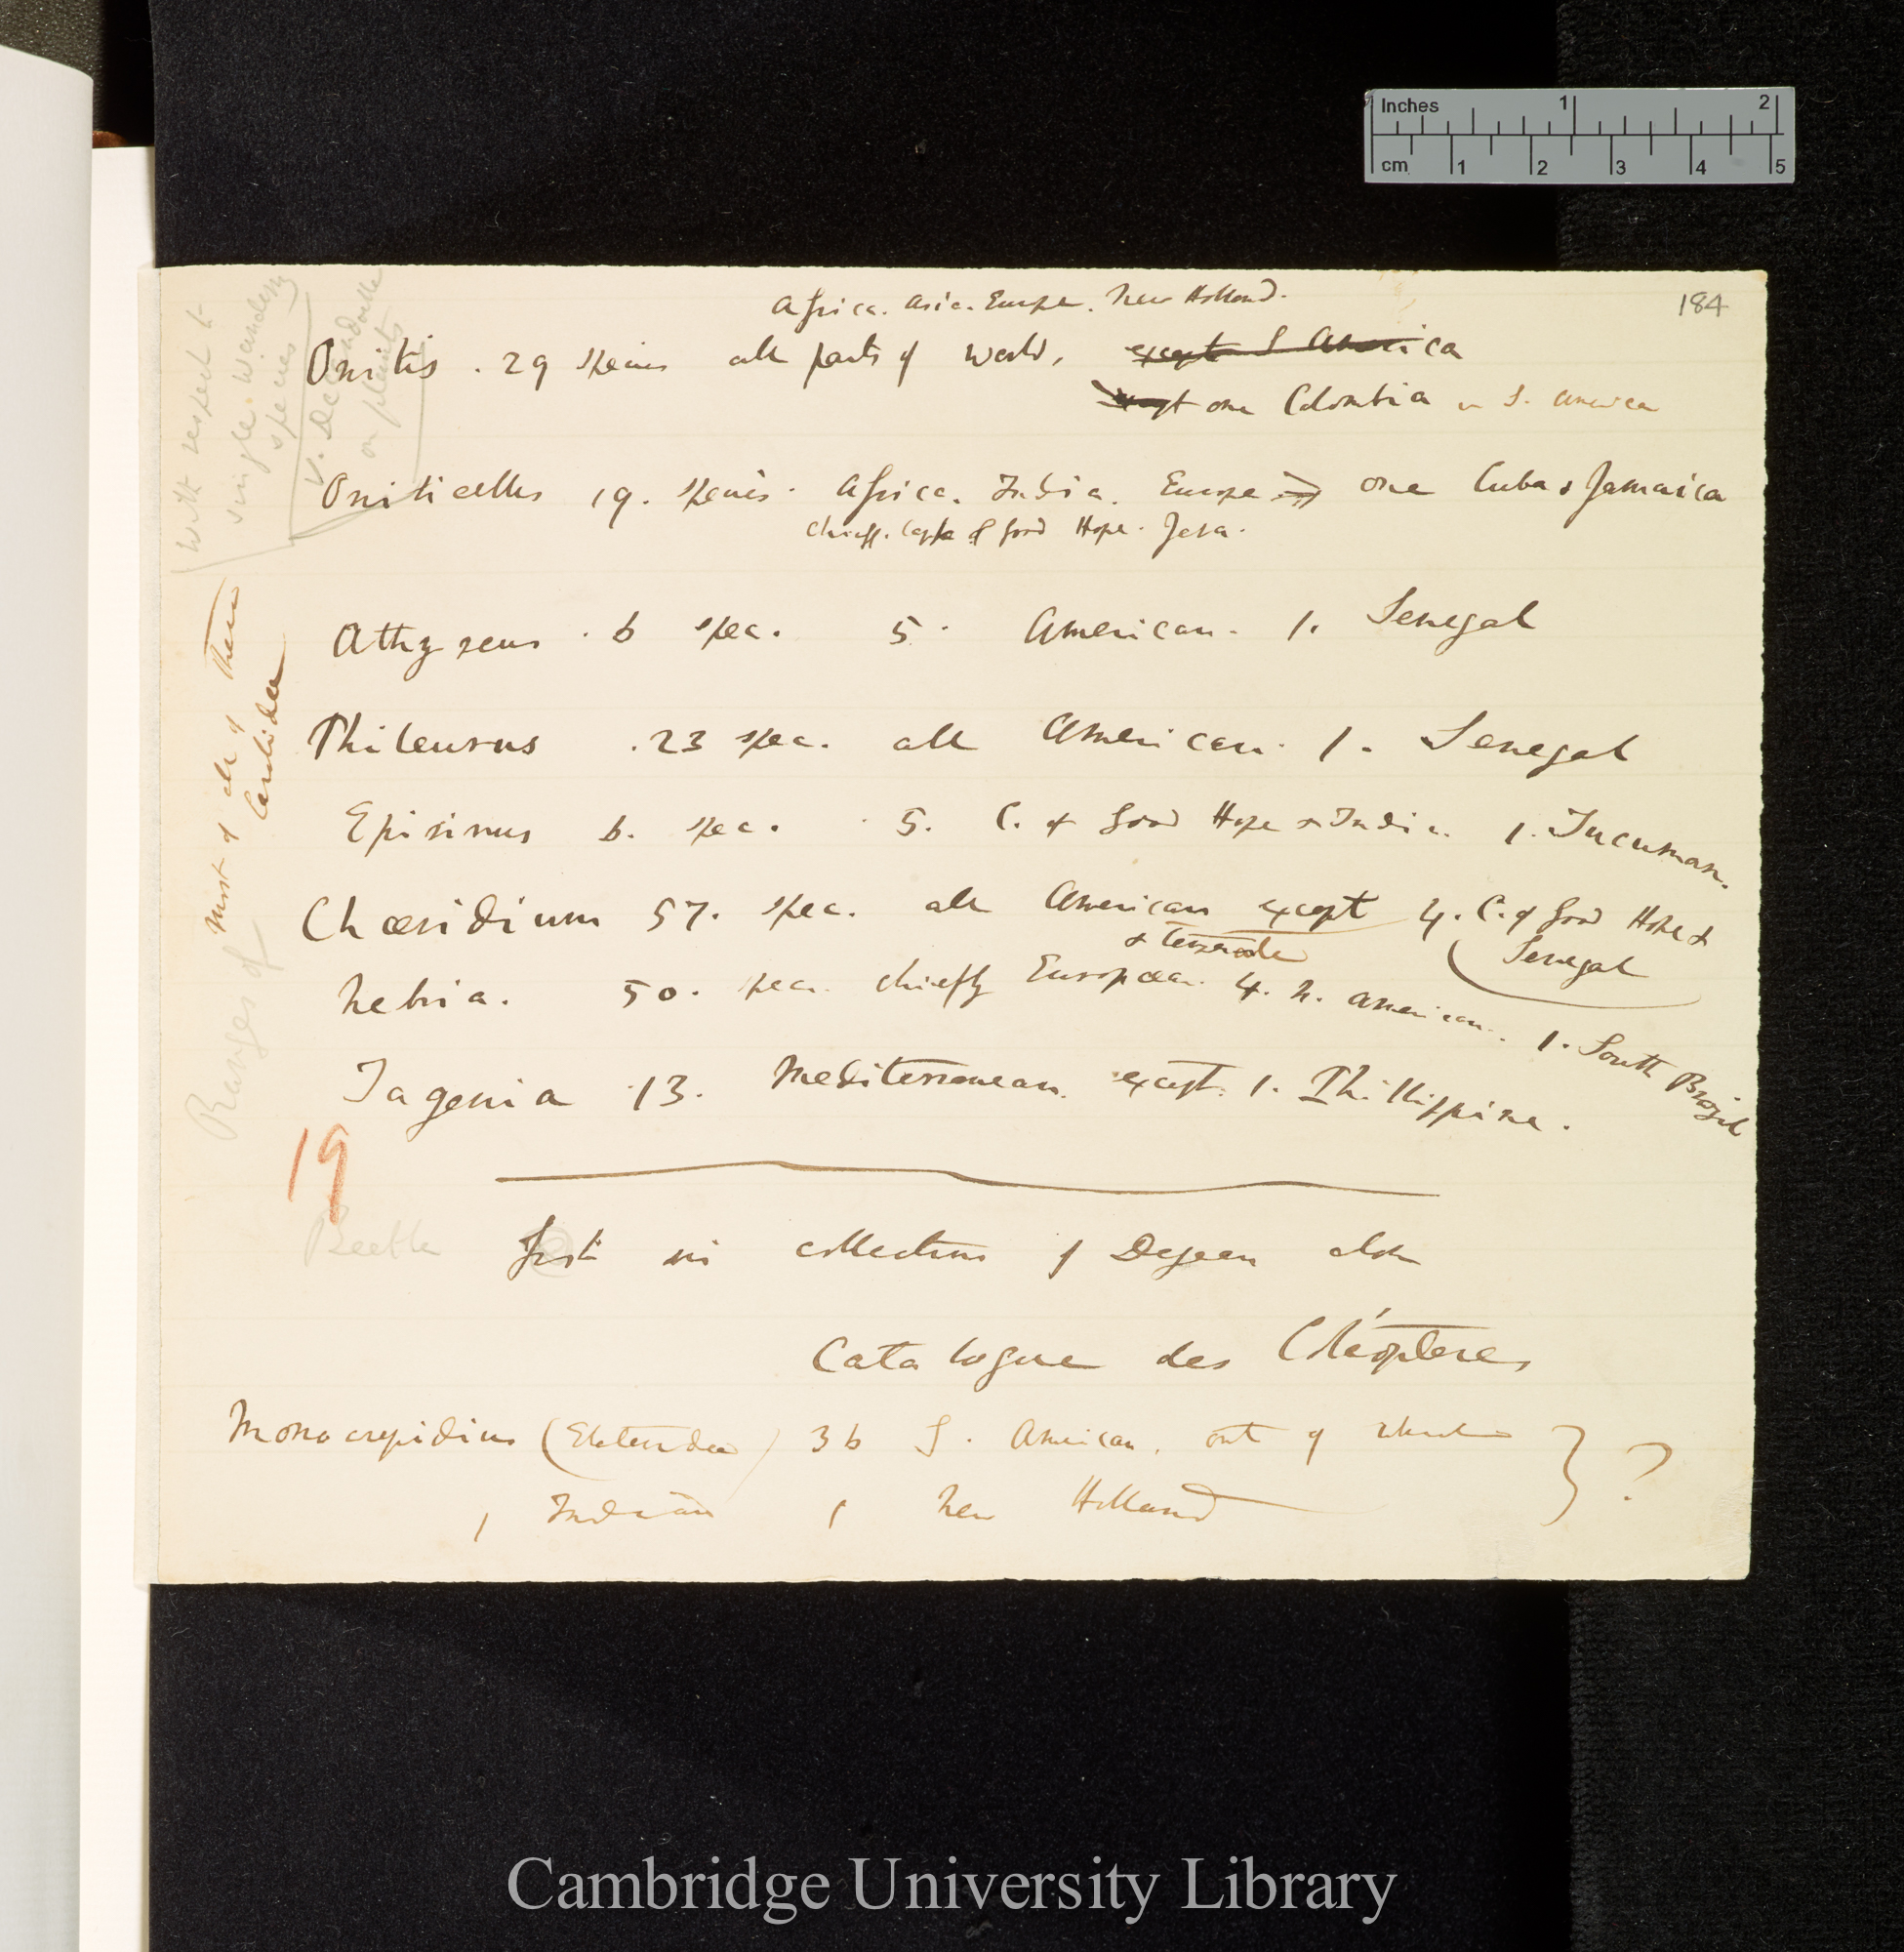 184
Africa. Asia. Europe. New Holland.
Onitis . 29 species all parts of world, except S America
except one Colombia in S. America
Oniticellus 19. species. Africa. India. Europe one Cuba & Jamaica
chiefly. Cape of Good Hope. Java.
Athyreus . 6 spec. 5. American. 1. Senegal
Phileurus . 23 spec. all American. 1. Senegal
Epirinus 6. spec. 5. C. of Good Hope & India. 1. Tucuman.
Chœridium 57. spec. all American except 4. C. of Good Hope &
Senegal
& Teneriffe
Nebria. 50. spec. chiefly European. 4. N. American. 1. South Brazil
Tagenia 13. Mediterranean. except. 1. Phillippine.
19
Beetle in collection of Dejean
Catalogue des Coléoptères
Monocrepidius (Elateridæ) 36 S. American, out of which } ?
1 Indian 1 New Holland
With respect to
single wandering
species
V. Decandolle
on plants
most of all of them
Ranges of